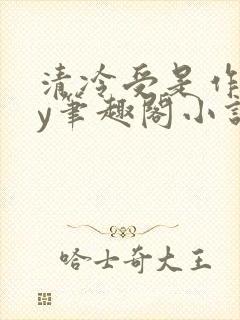 清冷受是作
y筆趣閣小說
哈士奇大王